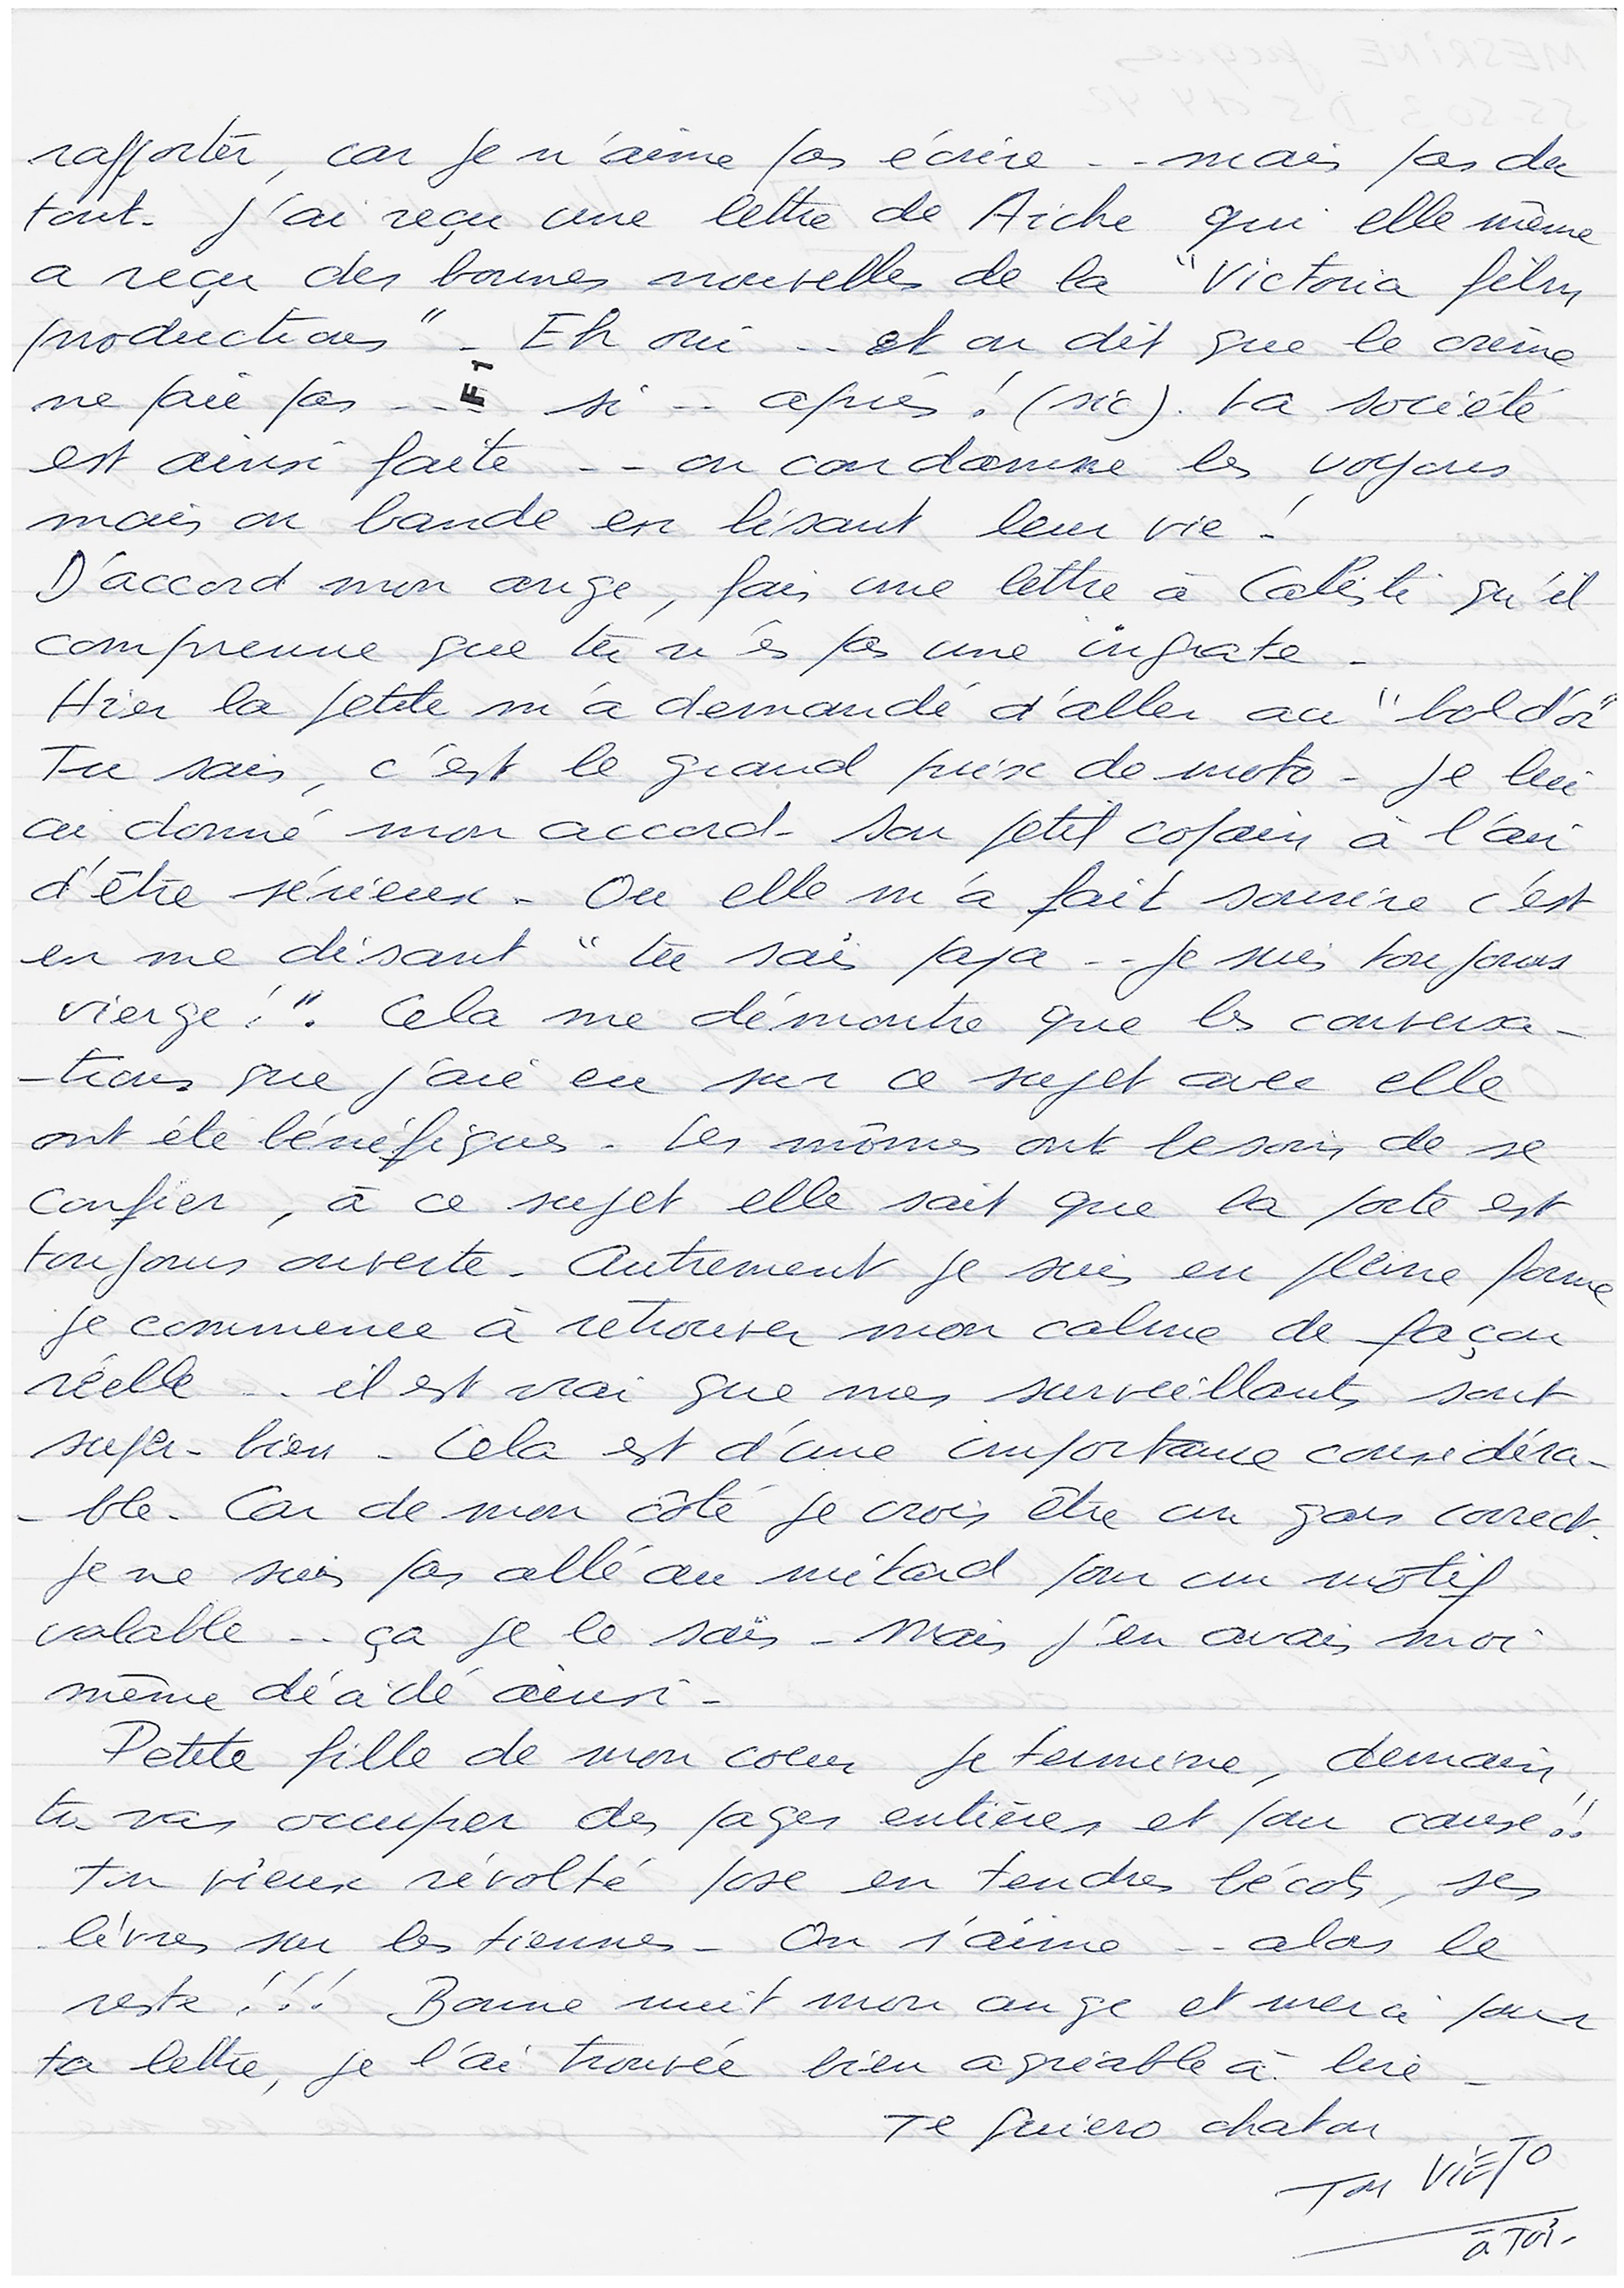 rapporter, car je n'aime pas écrire -- mais pas du
tout. J'ai reçu une lettre de Aiche qui elle même
a reçu des bonnes nouvelles de la "Victoria films
productions" - Eh oui -- et on dit que le crime
ne paie pas --- si -- après ! (sic). La société
F1
est ainsi faite -- on condamne les voyous
mais on bande en lisant leur vie !
D'accord mon ange, fais une lettre à qu'il
comprenne que tu n'es pas une ingrate -
Hier la petite m'a demandé d'aller au "bol d'or"
Tu sais, c'est le grand prix de moto - Je lui
ai donné mon accord - Son petit copain à l'air
d'être sérieux - Ou elle m'a fait sourire c'est
en me disant "tu sais papa -- je suis toujours
vierge !". Cela me démontre que les conversa-
-tions que j'aie eu sur ce sujet avec elle
ont été bénéfiques - Les mômes ont besoin de se
confier, à ce sujet elle sait que la porte est
toujours ouverte - Autrement je suis en pleine forme
je commence à retrouver mon calme de façon
réelle -- il est vrai que mes surveillants sont
super-bien - Cela est d'une importance considéra-
-ble - Car de mon côté je crois être un gars correct.
Je ne suis pas allé au mitard pour un motif
valable -- ça je le sais - Mais j'en avais moi
même décidé ainsi -
Petite fille de mon coeur je termine, demain
tu vas occuper des pages entières et pour cause !!
Ton vieux révolté pose en tendres bécots, ses
lèvres sur les tiennes - On s'aime -- alors le
reste !!! Bonne nuit mon ange et merci pour
ta lettre, je l'ai trouvée bien agréable à lire -
Te quiero chaton
Ton VIEJO
à TOI -